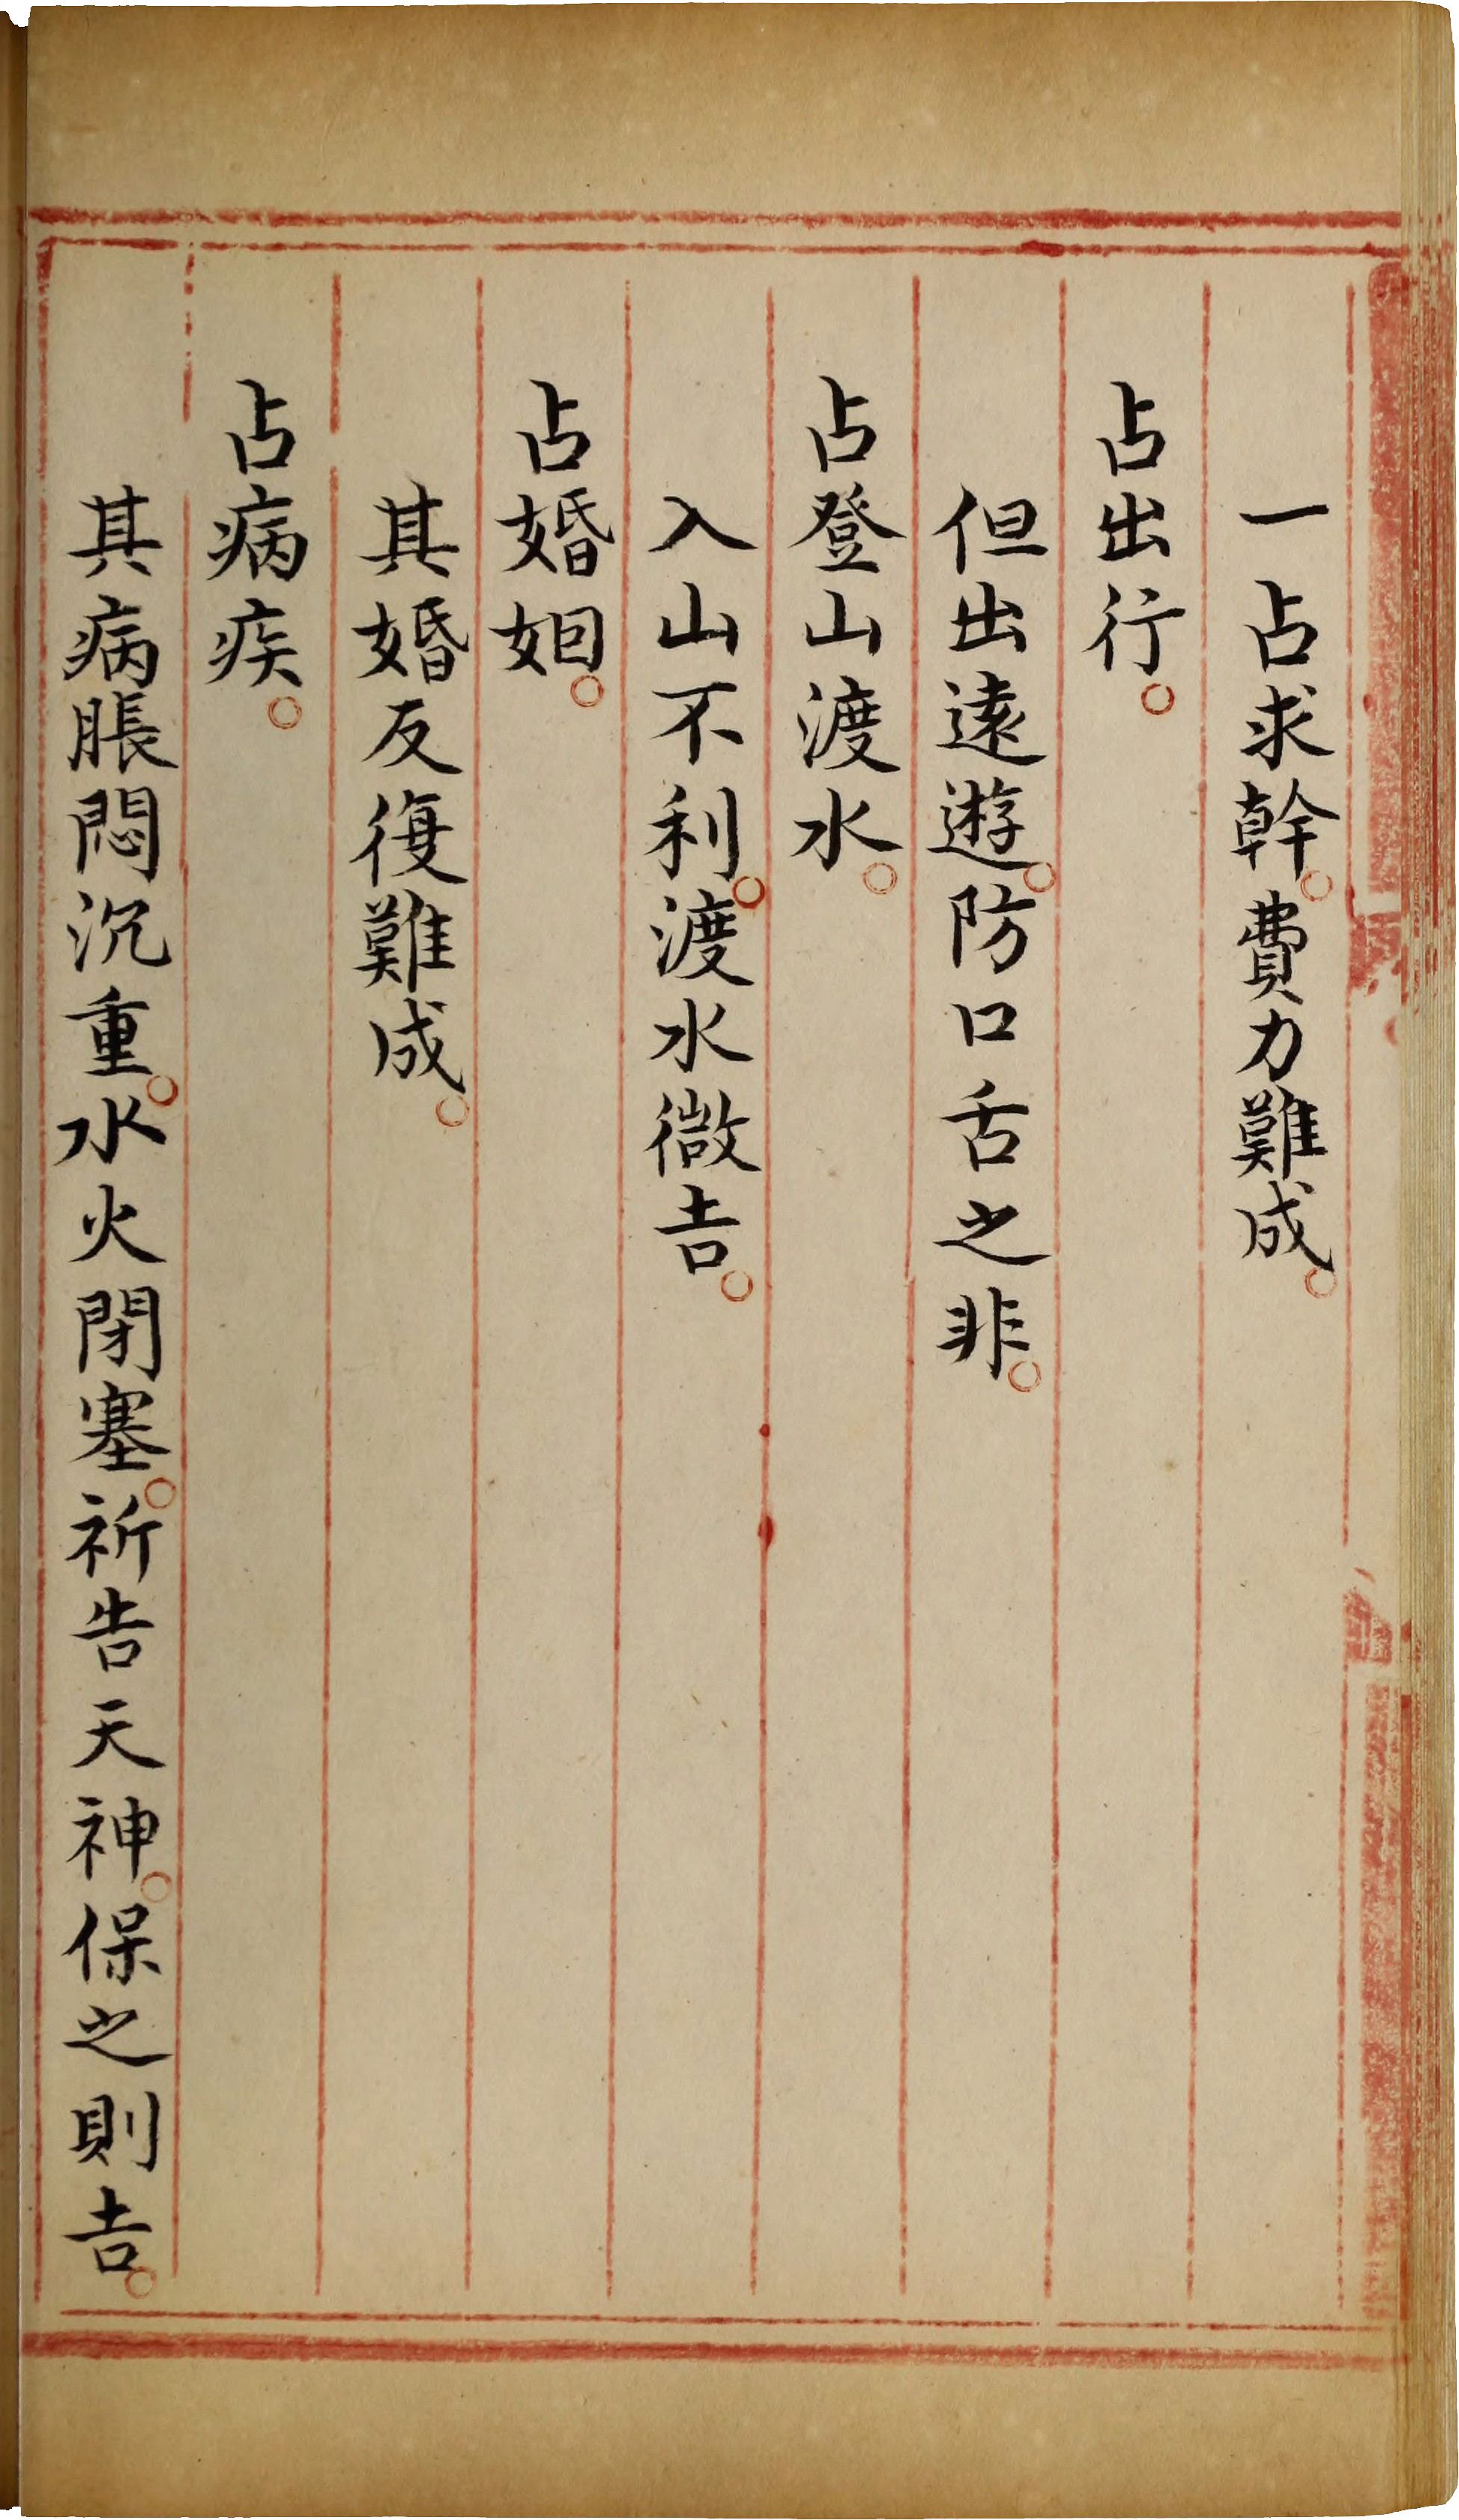 一占求幹。費力難成。
占出行。
但出遠遊。防口舌之非。
占登山渡水。
入山不利。渡水微吉。
占婚姻。
其婚反復難成。
占病疾。
其病脹悶沉重。水火閉塞。祈告天神。保之則吉。